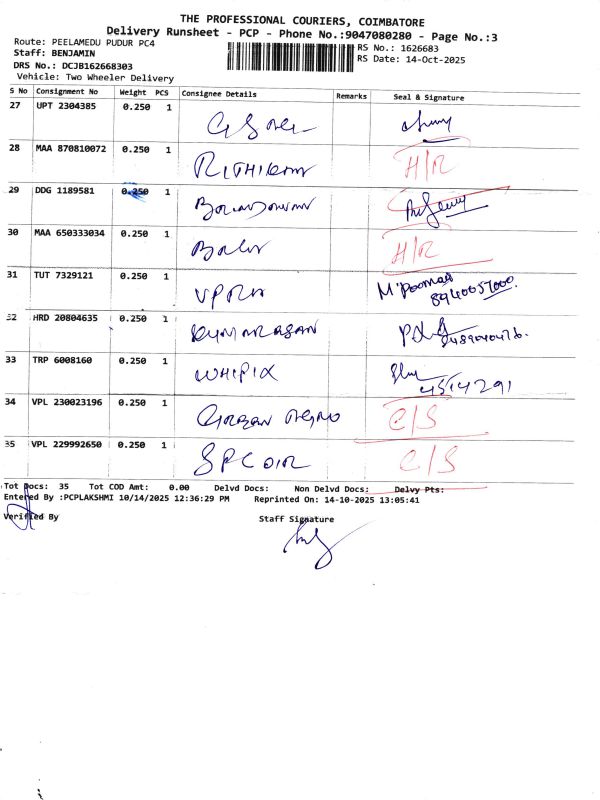 THE PROFESSIONAL COURIERS, COIMBATORE
Delivery Runsheet - PCP - Phone No.:9047080280 - Page No.:3
Route: PEELAMEDU PUDUR PC4
RS No.: 1626683
Staff: BENJAMIN
RS Date: 14-Oct-2025
DRS No.: DCJB162668303
Vehicle: Two Wheeler Delivery
S No Consignment No Weight PCS Consignee Details Remarks Seal & Signature
27 UPT 2304385 0.250 1
28 MAA 870810072 0.250 1 RITHIKAM H/R
29 DDG 1189581 0.250 1
30 MAA 650333034 0.250 1 H/R
31 TUT 7329121 0.250 1 VPRA
32 HRD 20804635 0.250 1 KUMARASAN
33 TRP 6008160 0.250 1 WHIPIX
34 VPL 230023196 0.250 1 C/S
35 VPL 229992650 0.250 1 SPCOIR C/S
Tot Docs: 35 Tot COD Amt: 0.00 Delvd Docs: Non Delvd Docs: Delvy Pts:
Entered By :PCPLAKSHMI 10/14/2025 12:36:29 PM Reprinted On: 14-10-2025 13:05:41
Verified By
Staff Signature